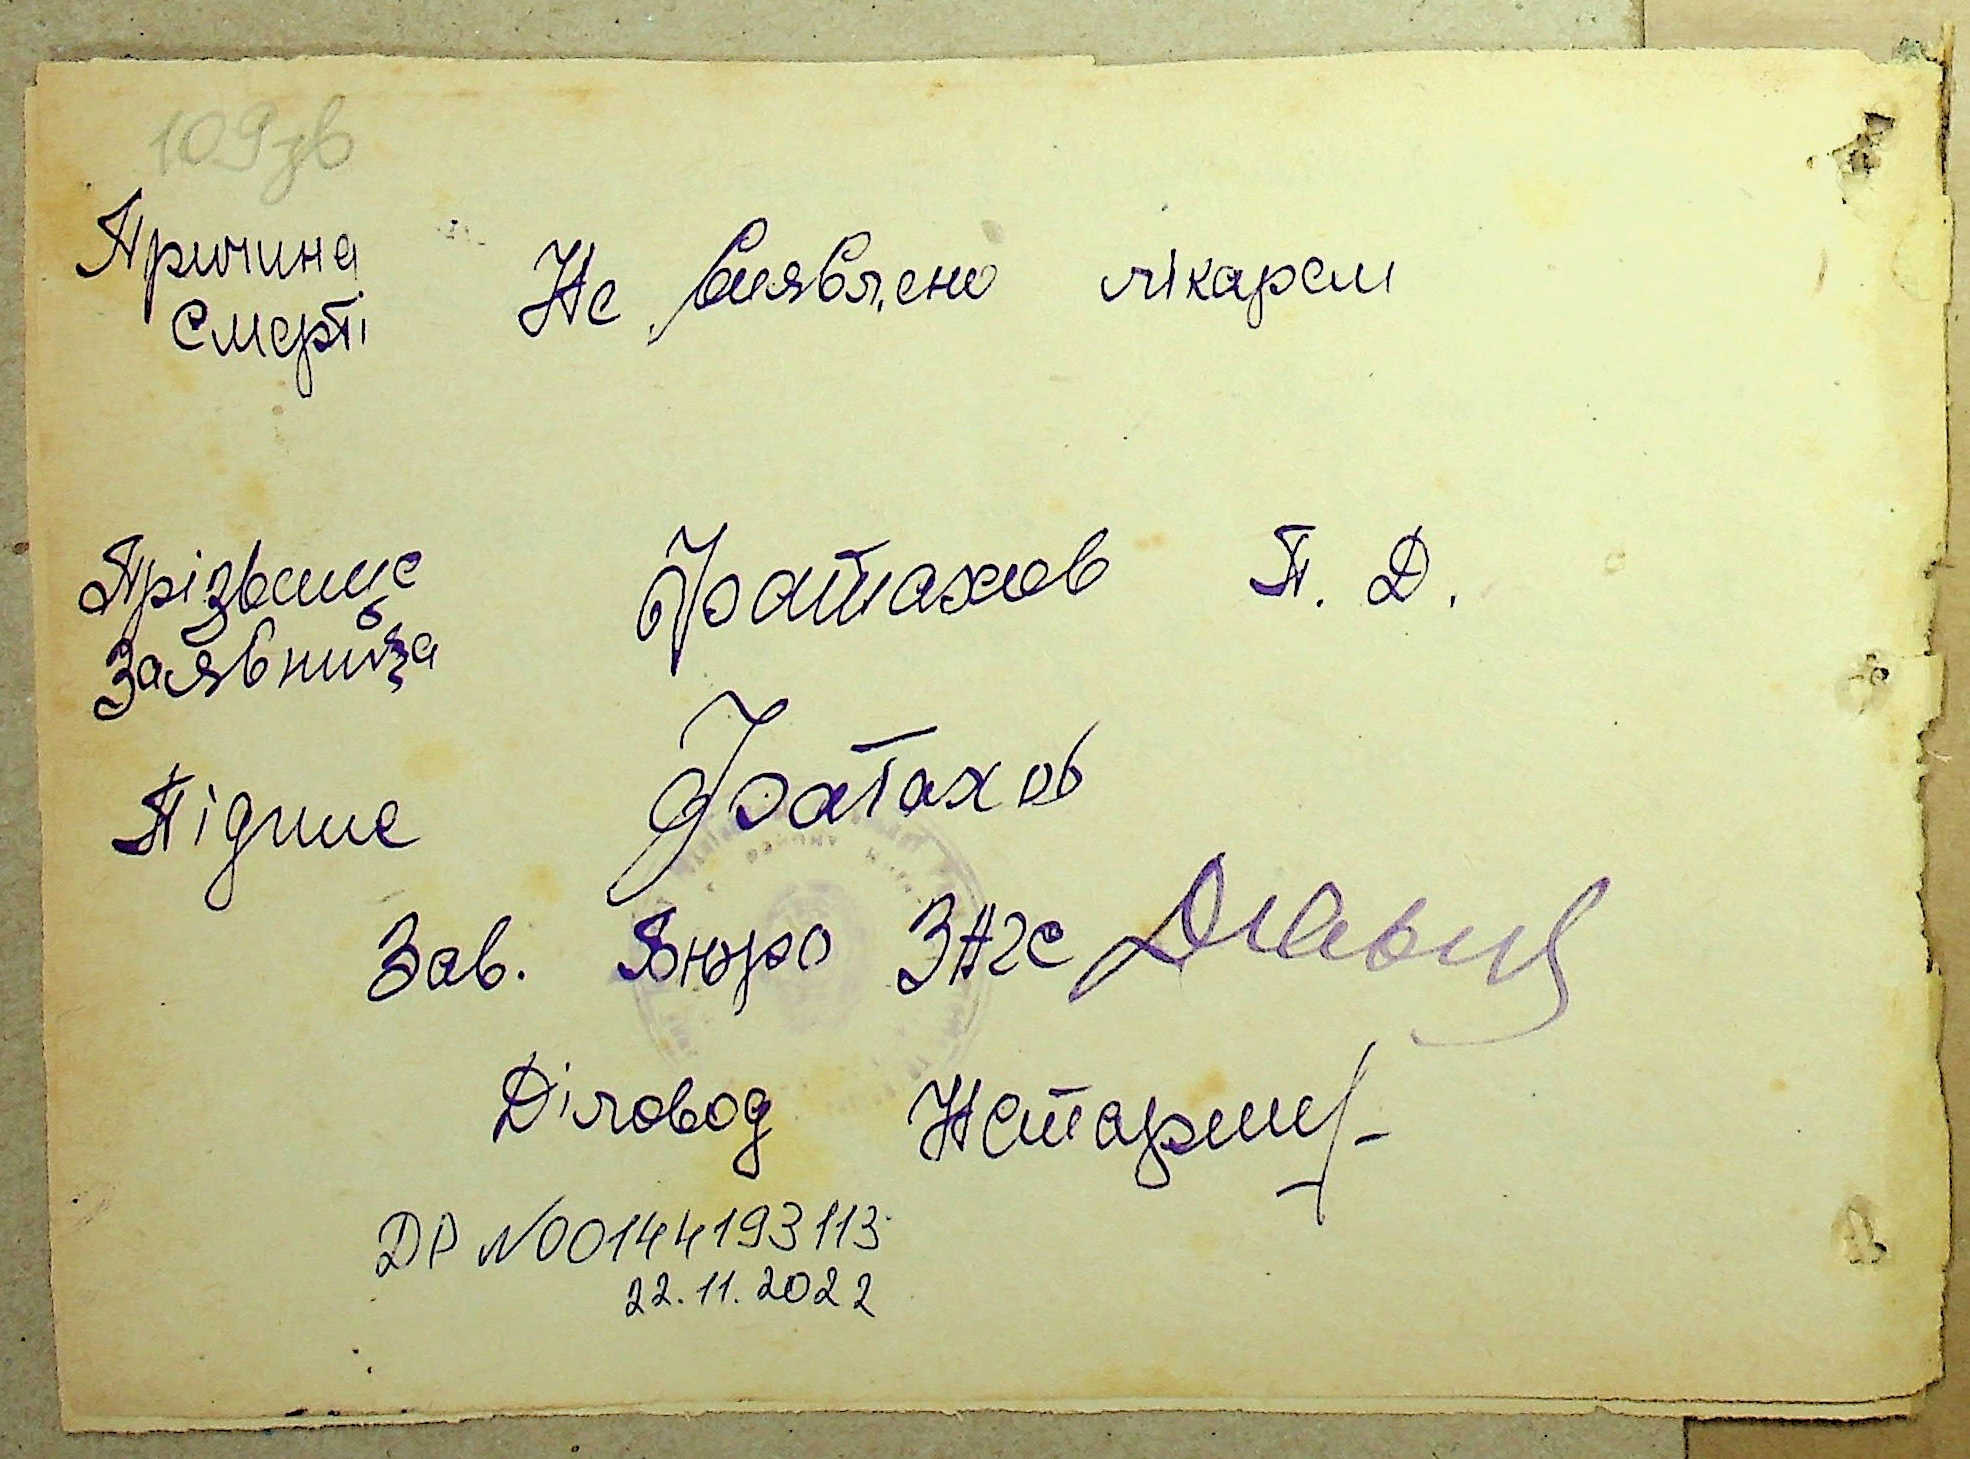 109зв
Причина Не виявлено лікарем
Смерті
Прізвище Фатахов П. Д.
Заявника
Підпис Фатахов
Зав. Бюро ЗАГС
Діловод
ДР №00144193113
22.11.2022